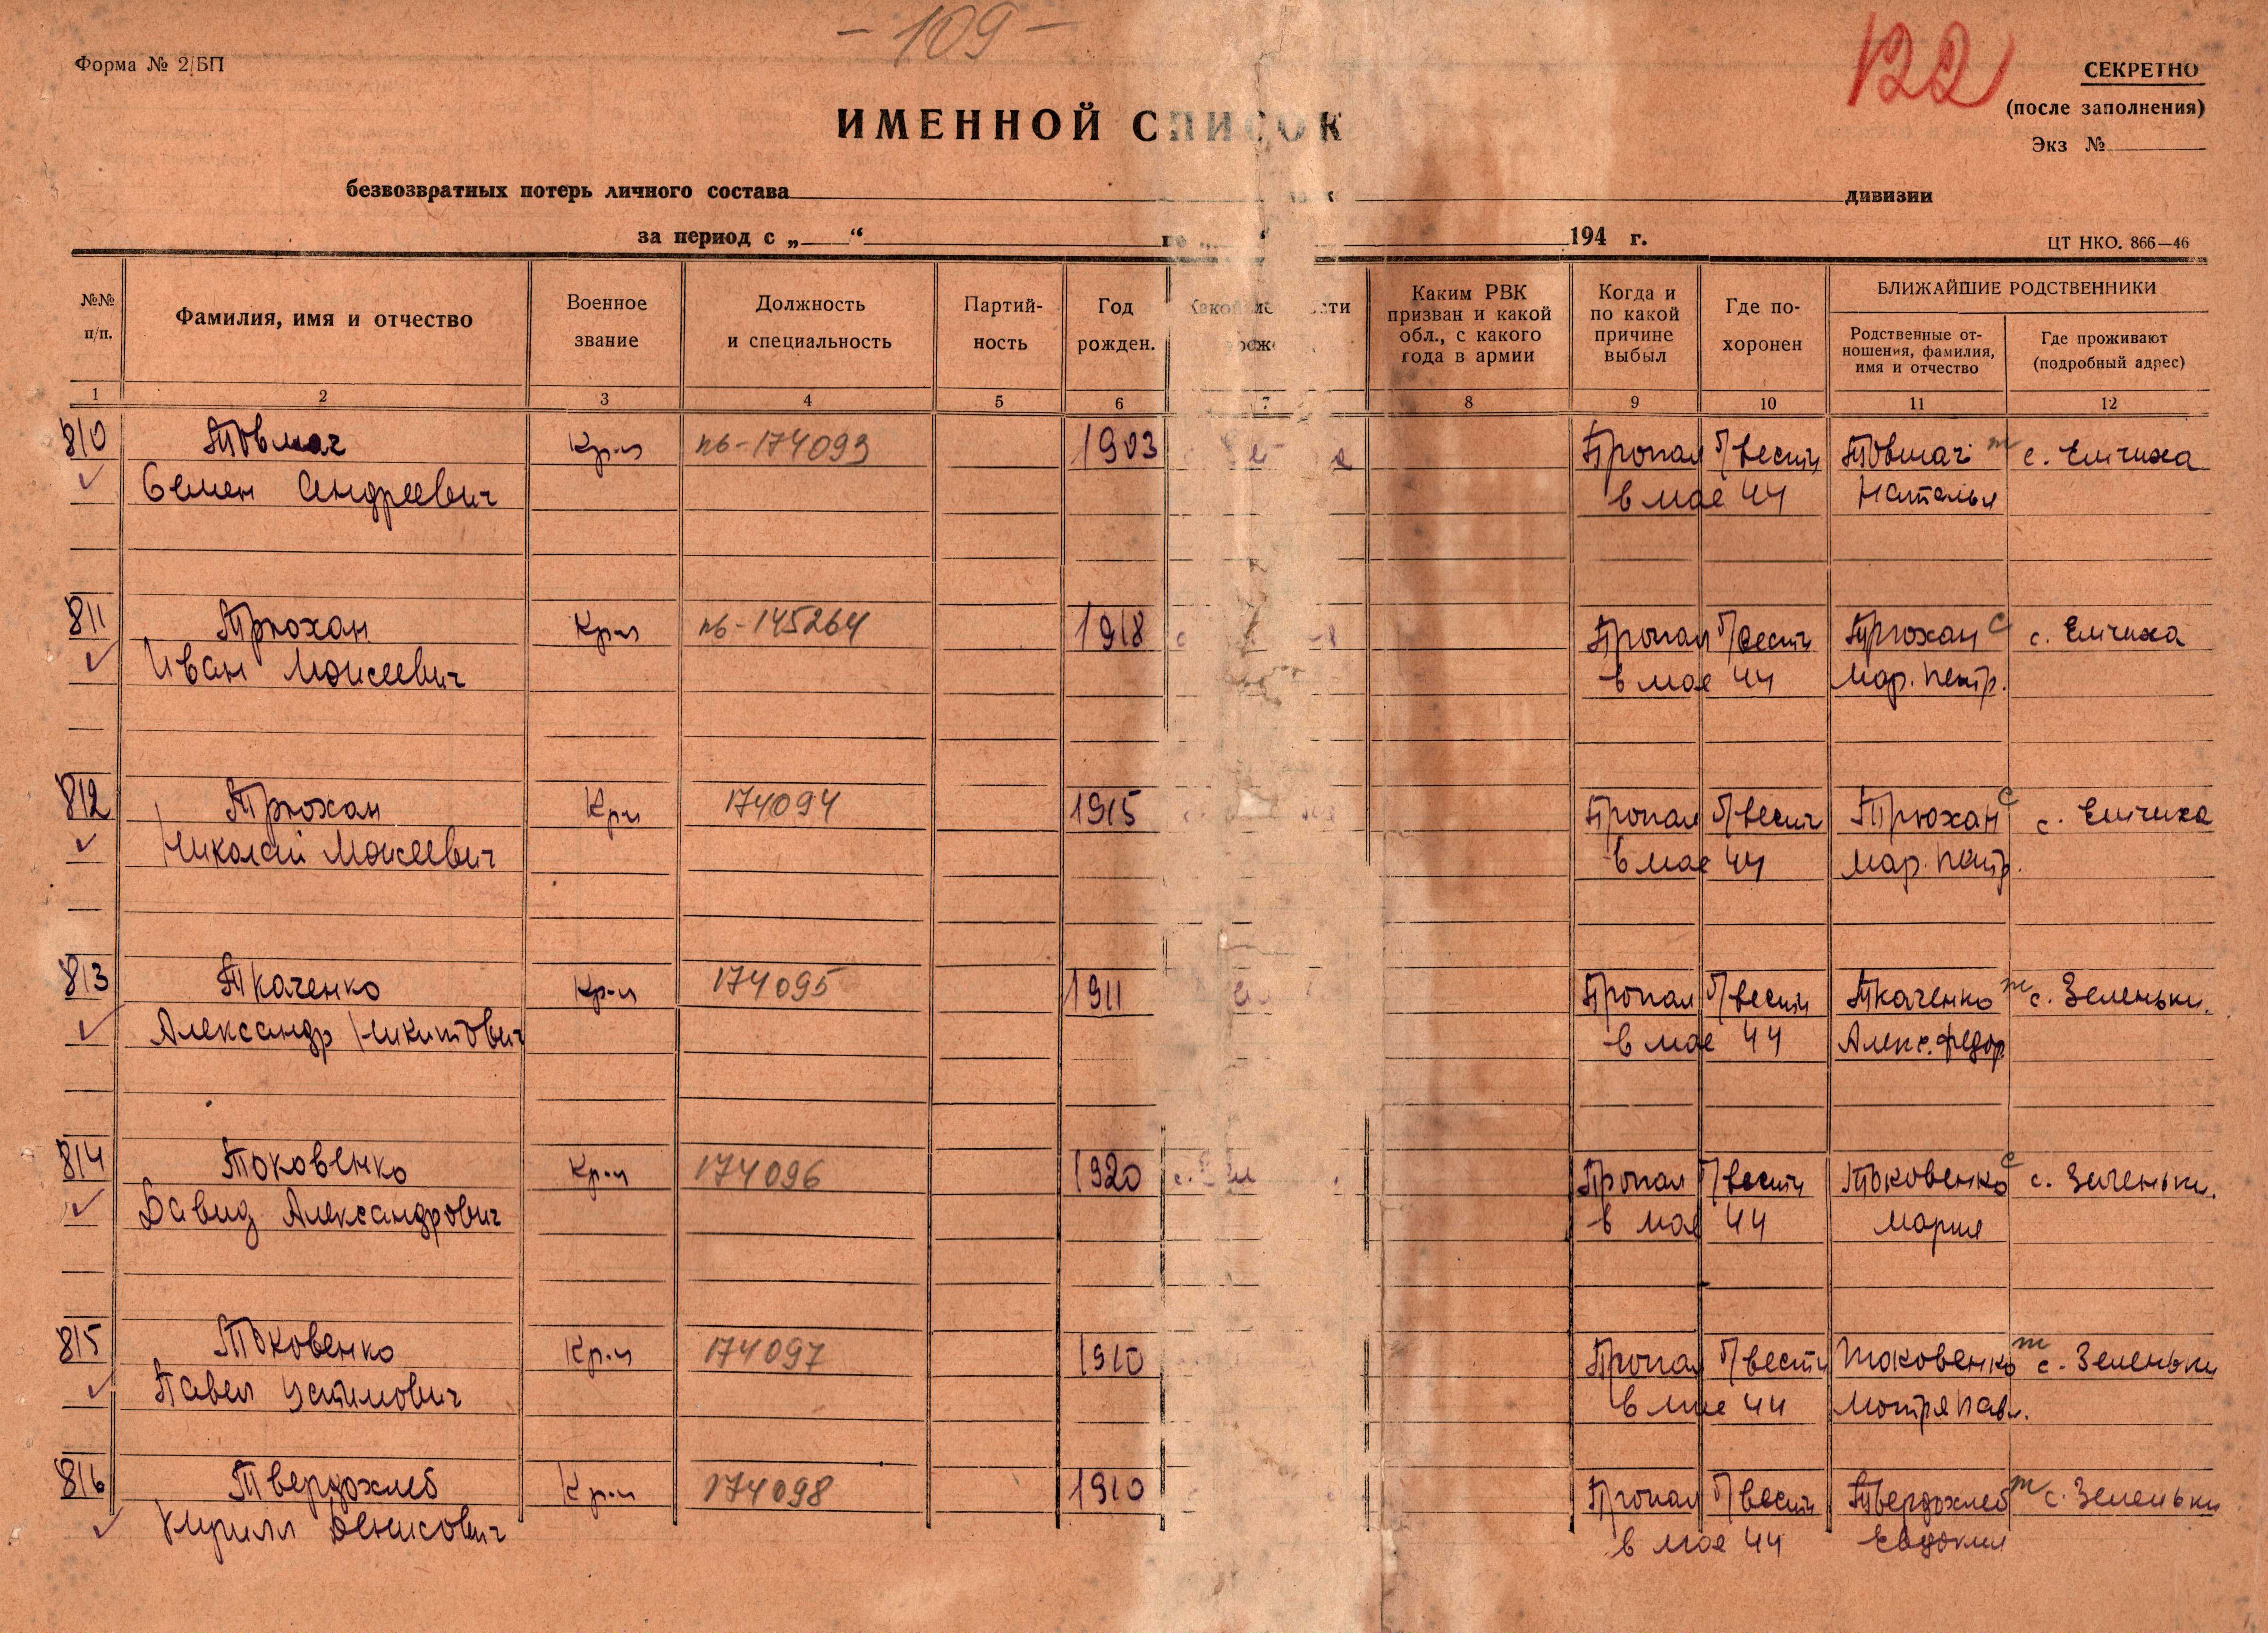 - 109 -
122
Форма № 2/БП
СЕКРЕТНО
(после заполнения)
Экз №
ИМЕННОЙ СПИСОК
безвозвратных потерь личного состава дивизии
за период с „ “ по „ “ 194 г.
ЦТ НКО. 866—46
№№ п/п.
Фамилия, имя и отчество
Военное звание
Должность и специальность
Партий-ность
Год рожден.
Каким РВК призван и какой обл., с какого года в армии
Когда и по какой причине выбыл
Где по-хоронен
БЛИЖАЙШИЕ РОДСТВЕННИКИ
Родственные от-ношения, фамилия, имя и отчество
Где проживают (подробный адрес)
1 2 3 4 5 6 7 8 9 10 11 12
810 Товмач Кр-ц пб-174093 1903 Пропал б/вести Товмач т с. Емчиха
Семен Андреевич в мае 44 Наталья
811 Трюхан Кр-ц пб-145264 1918 с Пропал б/вести Трюхан с с. Емчиха
Иван Моисеевич в мае 44 Мар. Петр.
812 Трюхан Кр-ц 174094 1915 Пропал б/вести Трюхан с с. Емчиха
Николай Моисеевич в мае 44 Мар. Петр.
813 Ткаченко Кр-ц 174095 1911 Пропал б/вести Ткаченко т с. Зеленьки.
Александр Никитович в мае 44 Алекс. Федор
814 Токовенко Кр-ц 174096 1920 с. Пропал б/вести Токовенко с с. Зеленьки.
Давид Александрович в мае 44 Мария
815 Токовенко Кр-ц 174097 1910 Пропал б/вести Токовенко т с. Зеленьки
Павел Устимович в мае 44 Мотря Пав.
816 Твердохлеб Кр-ц 174098 1910 Пропал б/вести Твердохлеб т с. Зеленьки
Кирилл Денисович в мае 44 Евдокия